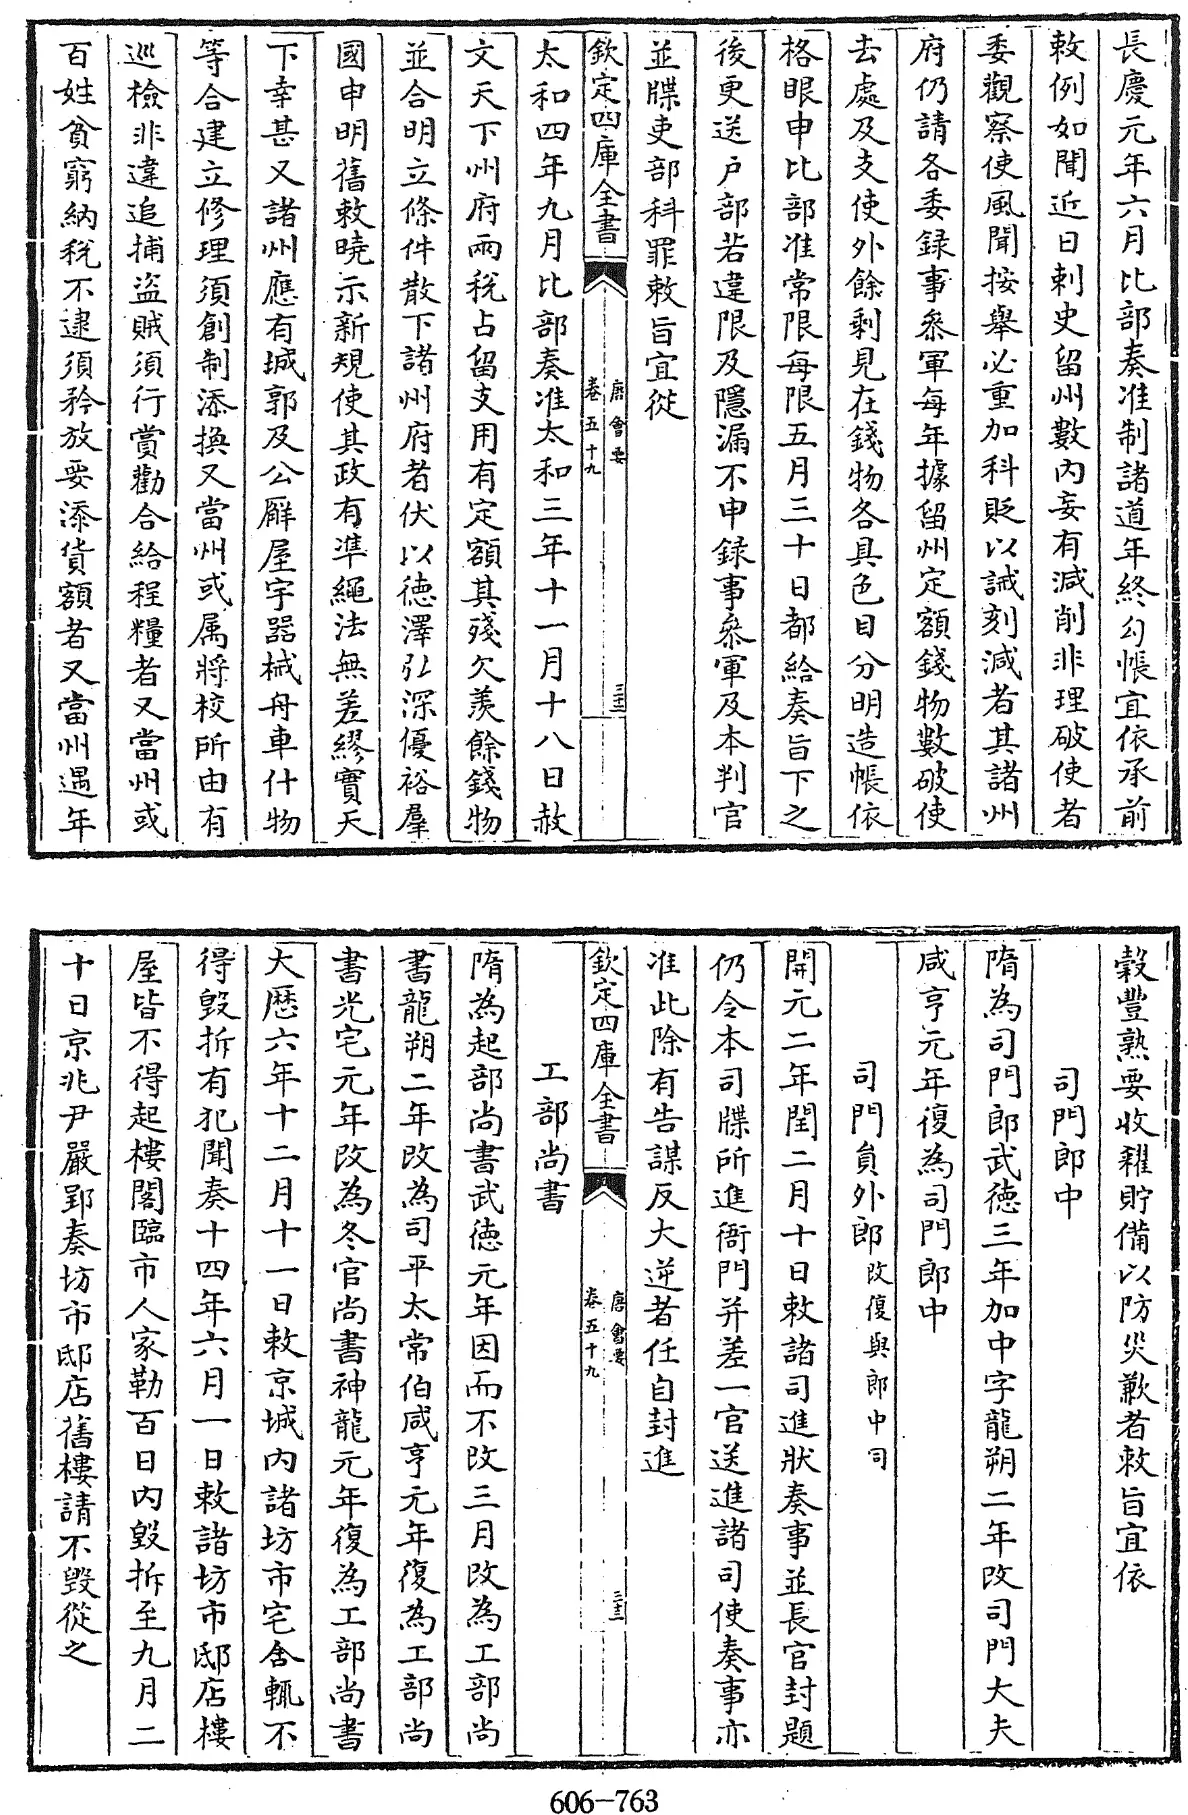 長慶元年六月比部奏准制諸道年終勾帳宜依承前
敕例如聞近日刺史留州數內妄有減削非理破使者
委觀察使風聞按舉必重加科貶以誡刻減者其諸州
府仍請各委録事叅軍每年據留州定額錢物數破使
去處及支使外餘剩見在錢物各具色目分明造帳依
格眼申比部准常限每限五月三十日都給奏旨下之
後更送户部若違限及隱漏不申録事叅軍及本判官
並牒吏部科罪敕旨宜從
欽定四庫全書
唐會要
卷五十九
三十二
太和四年九月比部奏准太和三年十一月十八日赦
文天下州府兩税占留支用有定額其殘欠羨餘錢物
並合明立條件散下諸州府者伏以徳澤弘深優裕羣
國申明舊敕曉示新規使其政有準繩法無差繆實天
下幸甚又諸州應有城郭及公廨屋宇器械舟車什物
等合建立修理須創制添換又當州或属將校所由有
巡檢非違追捕盜賊須行賞勸合給程糧者又當州或
百姓貧窮納税不逮須矜放要添貨額者又當州遇年
穀豐熟要收糴貯備以防災歉者敕旨宜依
司門郎中
隋為司門郎武徳三年加中字龍朔二年改司門大夫
咸亨元年復為司門郎中
司門員外郎改復與郎中司
開元二年閏二月十日敕諸司進狀奏事並長官封題
仍令本司牒所進衙門并差一官送進諸司使奏事亦
准此除有告謀反大逆者任自封進
欽定四庫全書
唐會要
卷五十九
三十三
工部尚書
隋為起部尚書武徳元年因而不改三月改為工部尚
書龍朔二年改為司平太常伯咸亨元年復為工部尚
書光宅元年改為冬官尚書神龍元年復為工部尚書
大歷六年十二月十一日敕京城内諸坊市宅舍輒不
得毀拆有犯聞奏十四年六月一日敕諸坊市邸店樓
屋皆不得起樓閣臨市人家勒百日内毀拆至九月二
十日京兆尹嚴郢奏坊市邸店舊樓請不毀從之
606-763